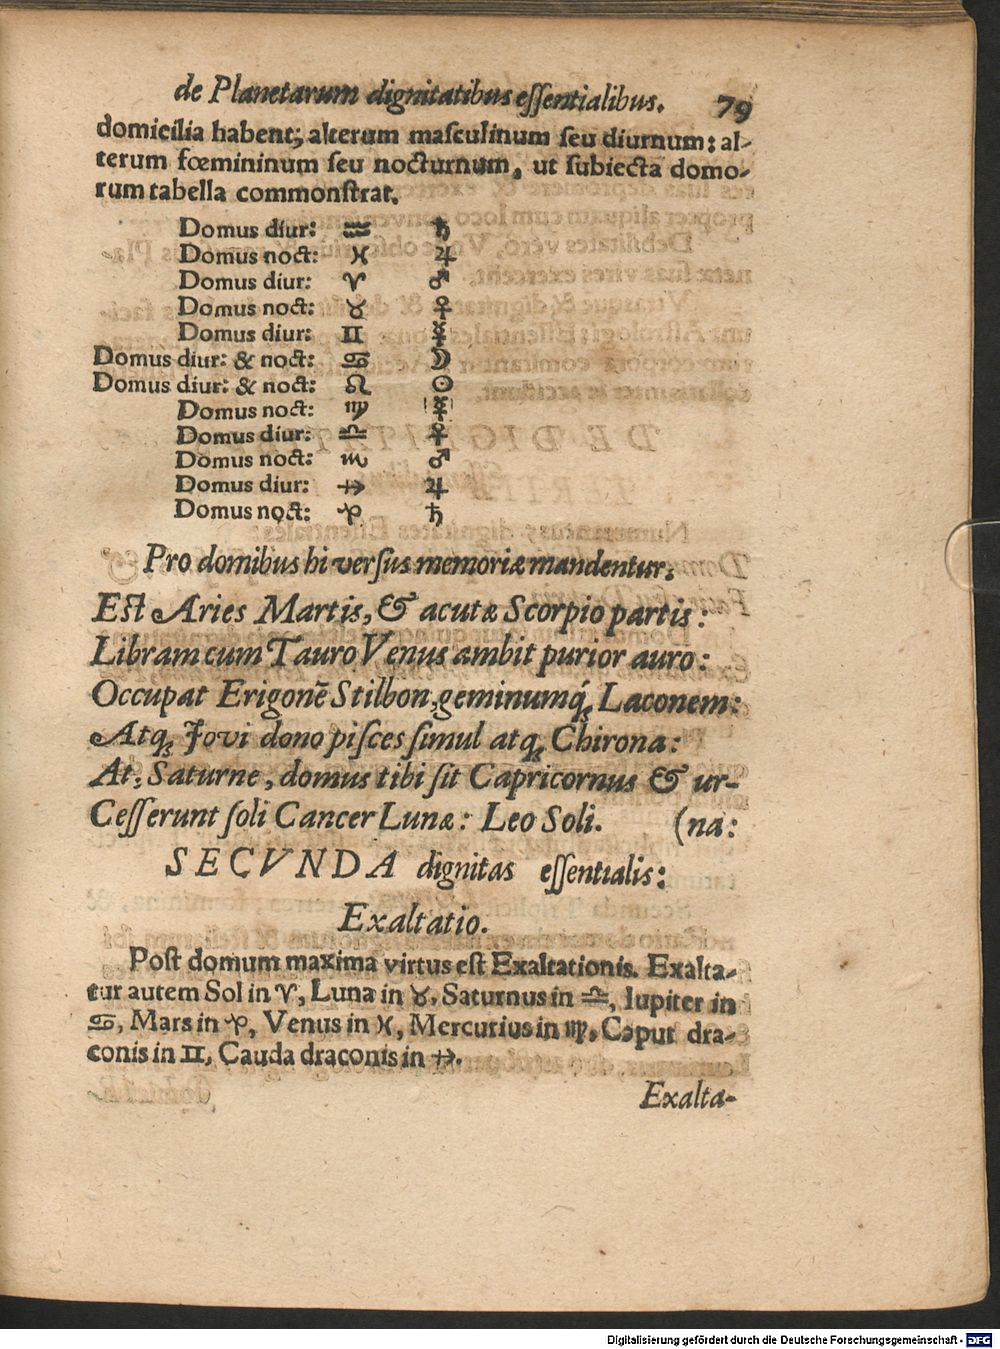 de Planetarum dignitatibus eſſentialibus. 79
domicilia habent; alterum maſculinum ſeu diurnum: al-
terum fœmininum ſeu nocturnum, ut ſubiecta domo-
rum tabella commonſtrat.
Domus diur: ♒ ♄
Domus noct: ♓ ♃
Domus diur: ♈ ♂
Domus noct: ♉ ♀
Domus diur: ♊ ☿
Domus diur: & noct: ♋ ☽
Domus diur: & noct: ♌ ☉
Domus noct: ♍ ☿
Domus diur: ♎ ♀
Domus noct: ♏ ♂
Domus diur: ♐ ♃
Domus noct: ♑ ♄
Pro domibus hi verſus memoriæ mandentur.
Eſt Aries Martis, & acutæ Scorpio partis:
Libram cum Tauro Venus ambit purior auro:
Occupat Erigonē Stilbon, geminumq́ꝫ Laconem:
Atqꝫ Jovi dono piſces ſimul atqꝫ Chirona:
At, Saturne, domus tibi ſit Capricornus & ur-
Ceſſerunt ſoli Cancer Lunæ: Leo Soli. (na:
SECVNDA dignitas eſſentialis:
Exaltatio.
Poſt domum maxima virtus eſt Exaltationis. Exalta-
tur autem Sol in ♈, Luna in ♉, Saturnus in ♎, Iupiter in
♋, Mars in ♑, Venus in ♓, Mercurius in ♍, Caput dra-
conis in ♊, Cauda draconis in ♐.
Exalta-
Digitalisierung gefördert durch die Deutsche Forschungsgemeinschaft - DFG